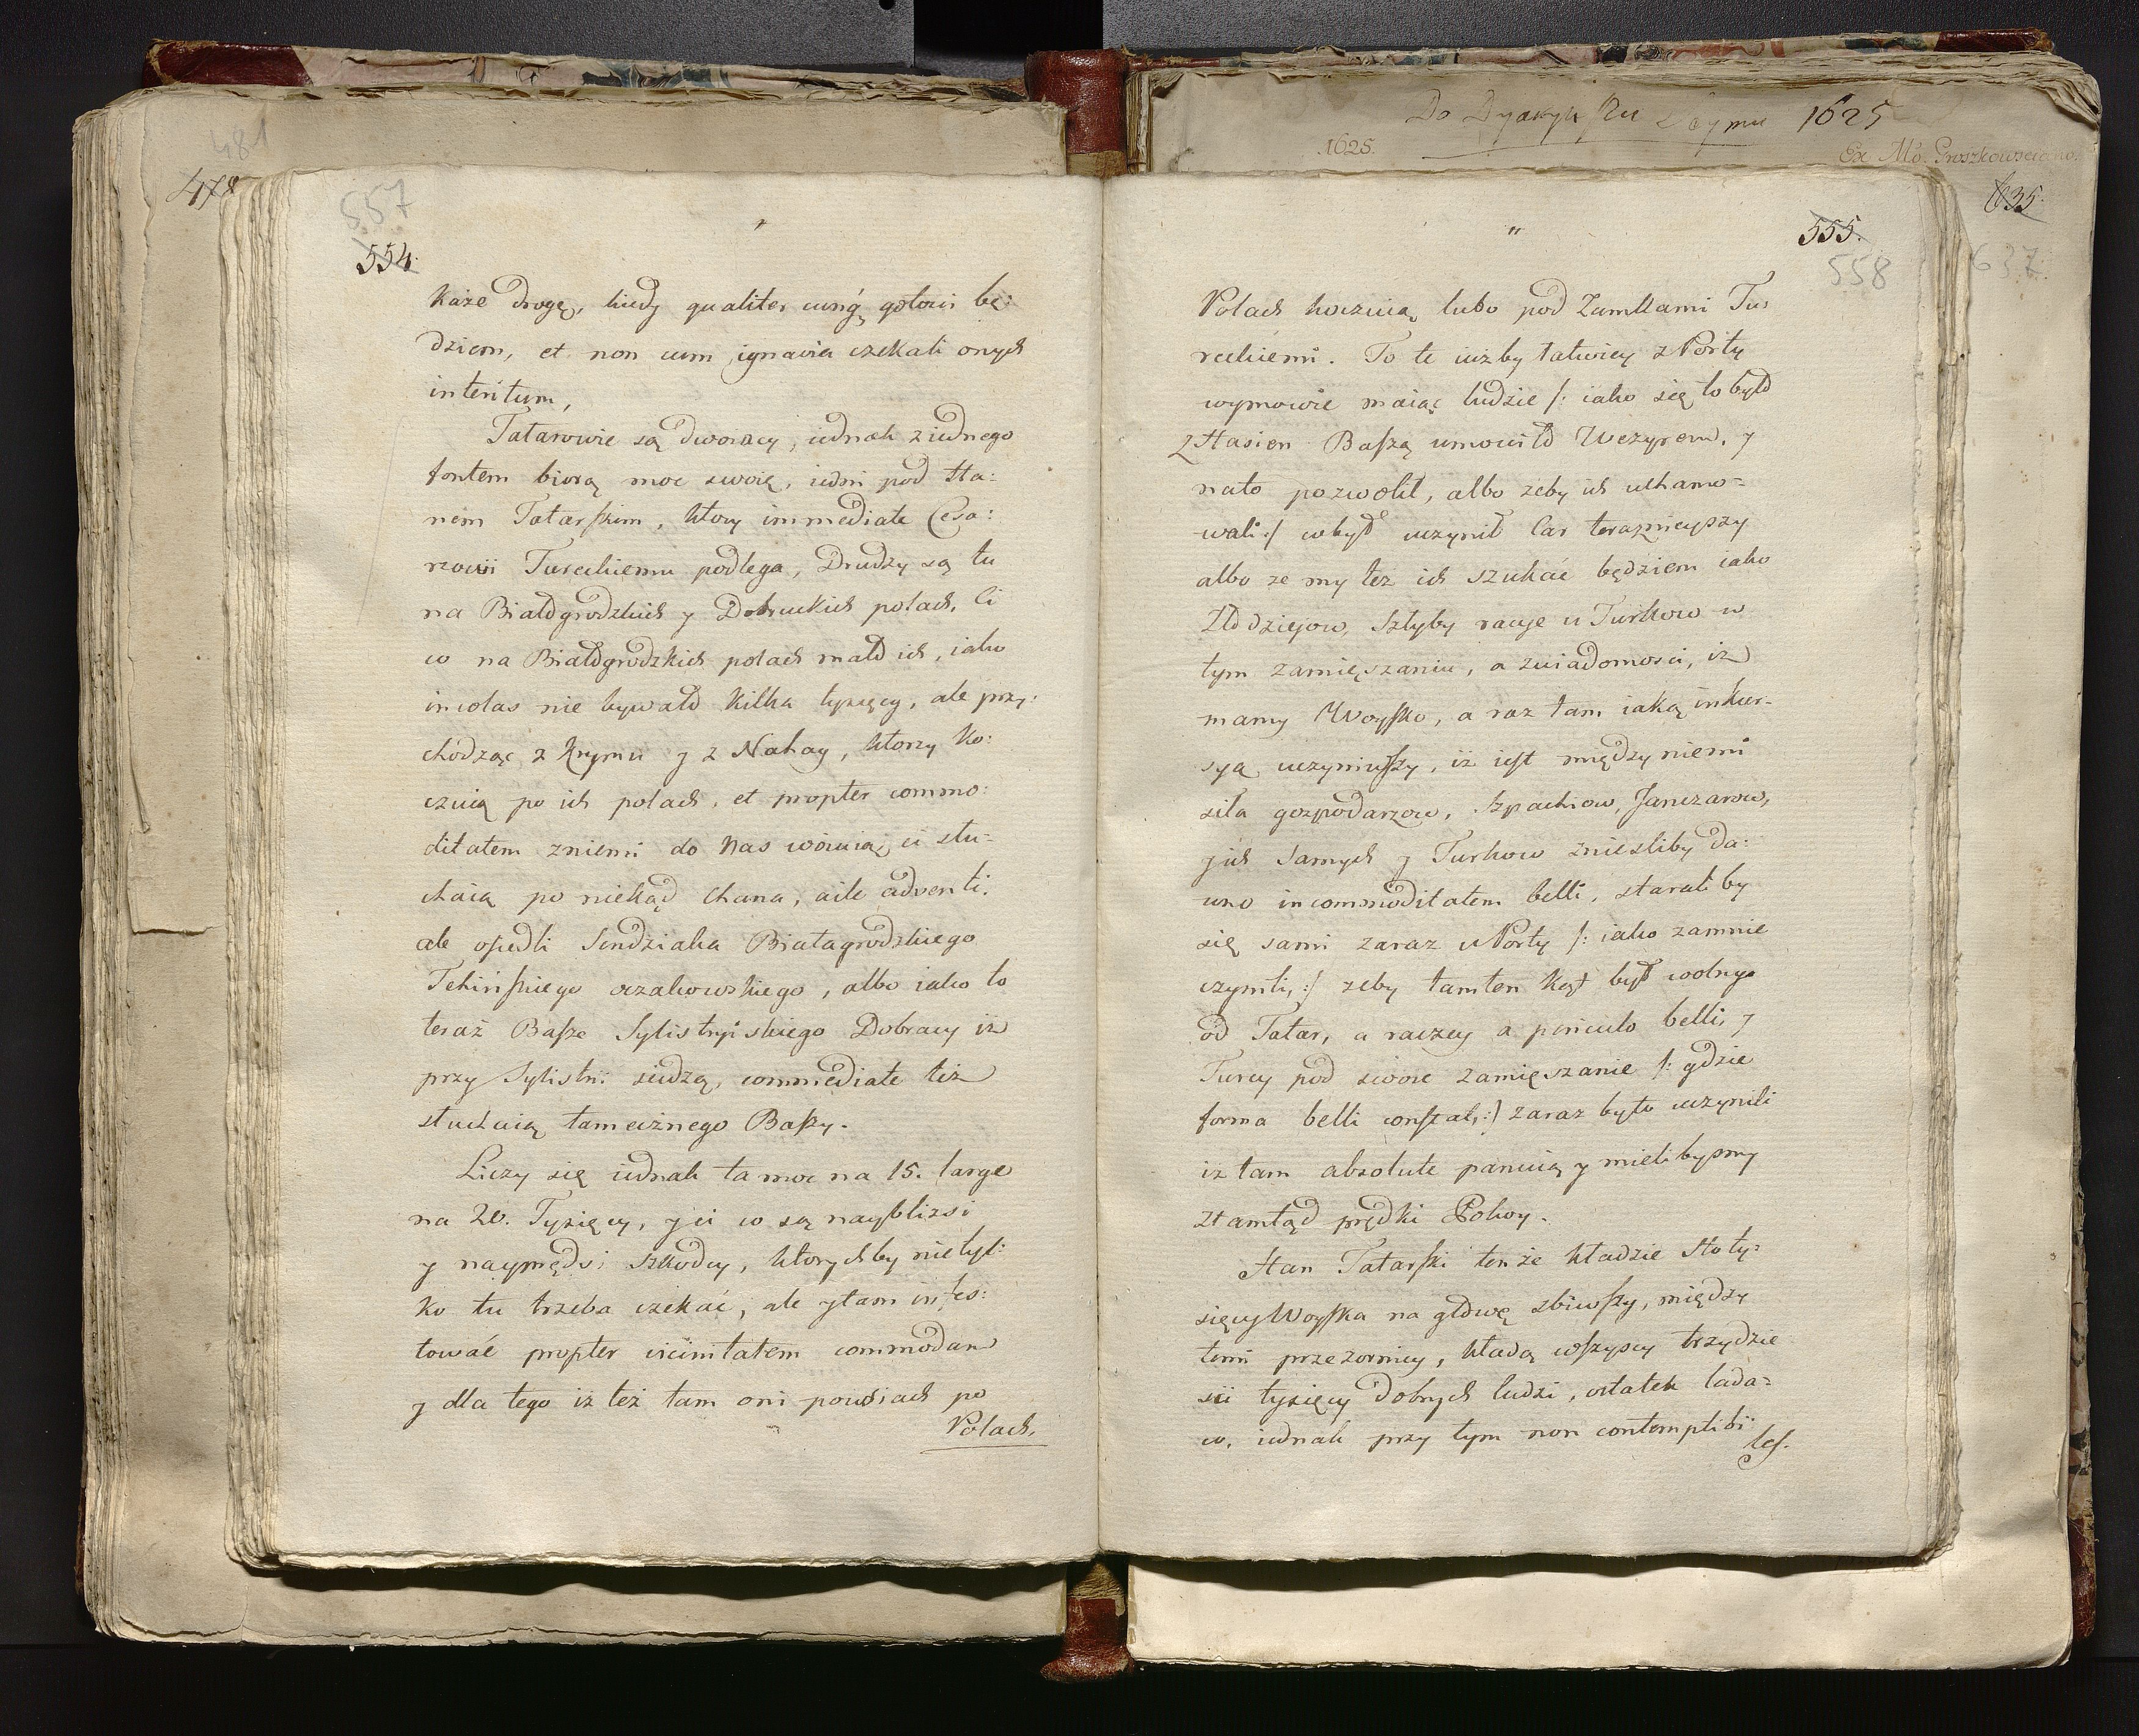 481
478
557
554.
każe drogę, kiedy qualiter cunq́ gotowi bę:
dziem, et non cum ignavia czekali onych
interitum,
Tatarowie są dwoiacy, iednak z iednego
fontem biorą moc swoię, iedni pod Ha:
nem Tatarskim, ktory immediate Cesa:
rzowi Tureckiemu podlega, Drudzy są tu
na Białogrodzkich y Dobruckich polach, Ci
co na Białogrodzkich polach mało ich, iako
incolas nie bywało kilka tysięcy, ale przy:
chodząc z Krymu y z Nahay, ktorzy ko:
czuią po ich polach, et propter commo:
ditatem zniemi do Nas woiuią, ci słu-
chaią po niekąd Chana, aile adventi.
ale osiedli Sendziaka Białagrodzkiego
Tehińskiego oczakowskiego, albo iako to
teraz Basze Sylistryiskiego Dobracy iż
przy Sylistrii siedzą, commediate też
słuchaią tamecznego Baszy.
Liczy się iednak ta moc na 15. large
na 20. Tysięcy, y ci co są nayblizsi
y nayprędsi szkodcy, ktorychby nietyl:
ko tu trzeba czekać, ale ytam infes:
tować propter vicinitatem commodam
y dla tego iż też tam oni powsiach po
Polach.
Do Dyaryu Seymu 1625
1625.
Ex Mo. Groszkowsciano.
635.
637.
555.
558
Polach koczuią lubo pod Zamkami Tu:
reckiemi. To te iużby łatwiey z Porty
wymowie maiąc ludzie /: iako się to było
z Hasien Baszą umowiło Wezyrem, y
nato pozwolił, albo zeby ich uchamo-
wali :/ cobył uczynił Car teraznieyszy
albo ze my też ich szukać będziem iako
Złodziejow, Szłyby racye u Turkow w
tym zamięszaniu, a zwiadomosci, iż
mamy Woysko, a raz tam iaką inkur-
syą uczyniwszy, iż iest między niemi
siła gospodarzow, Szpachiow, Janczarow,
y ich samych y Turkow zniesliby da:
wno incommoditatem belli, starali by
się sami zaraz u Porty /: iako zamnie
czynili :/ zeby tamten kąt był wolny
od Tatar, a raczey a periculo belli, y
Turcy pod swoie zamięszanie /: gdzie
forma belli constat :/ zaraz było uczynili
iz tam absolute panuią y mielibysmy
ztamtąd prędki Pokoy.
Han Tatarski tenże kładzie Sto ty-
sięcy Woyska na głowę zbiwszy, między
temi przezorniey, kładą wszyscy trzydzie
sci tysięcy dobrych ludzi, ostatek lada-
co, iednak przy tym non contemptibi
les.